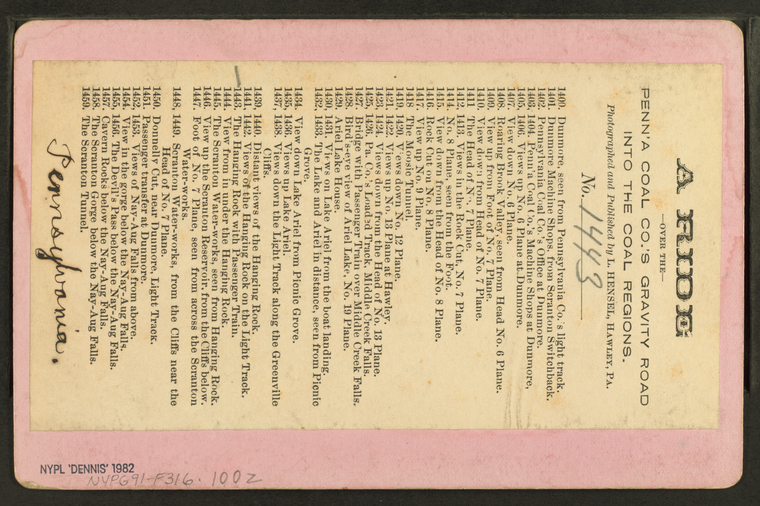 A RIDE
—OVER THE—
PENN'A COAL CO.'S GRAVITY ROAD
INTO THE COAL REGIONS.
Photographed and Published by L. HENSEL, HAWLEY, PA.
No. 1443
1400. Dunmore, seen from Pennsylvania Co.'s light track.
1401. Dunmore Machine Shops, from Scranton Switchback.
1402. Pennsylvania Coal Co.'s Office at Dunmore.
1403, 1404. Penn'a Coal Co.'s Machine Shops at Dunmore.
1405, 1406. Views of No. 6 Plane at Dunmore.
1407. View down No. 6 Plane.
1408. Roaring Brook Valley, seen from Head No. 6 Plane.
1409. View up from Foot of No. 7 Plane.
1410. View down from Head of No. 7 Plane.
1411. The Head of No. 7 Plane.
1412, 1413. Views in the Rock Cut, No. 7 Plane.
1414. No. 8 Plane, seen from the Foot.
1415. View down from the Head of No. 8 Plane.
1416. Rock Cut on No. 8 Plane.
1417. View up No. 9 Plane.
1418. The Moosic Tunnel.
1419, 1420. Views down No. 12 Plane.
1421, 1422. Views up No. 13 Plane at Hawley.
1423, 1424. Views down from the Head of No. 13 Plane.
1425, 1426. Pa. Co.'s Loaded Track, Middle Creek Falls.
1427. Bridge with Passenger Train over Middle Creek Falls.
1428. Bird's-eye view of Ariel Lake, No. 19 Plane.
1429. Ariel Lake House.
1430, 1431. Views on Lake Ariel from the boat landing.
1432, 1433. The Lake and Ariel in distance, seen from Picnic
Grove.
1434. View down Lake Ariel from Picnic Grove.
1435, 1436. Views up Lake Ariel.
1437, 1438. Views down the Light Track along the Greenville
Cliffs.
1439, 1440. Distant views of the Hanging Rock.
1441, 1442. Views of the Hanging Rock on the Light Track.
1443. The Hanging Rock with Passenger Train.
1444. View from in under the Hanging Rock.
1445. The Scranton Water-works, seen from Hanging Rock.
1446. View up the Scranton Reservoir, from the Cliffs below.
1447. Foot of No. 7 Plane, seen from across the Scranton
Water-works.
1448, 1449. Scranton Water-works, from the Cliffs near the
Head of No. 7 Plane.
1450. Donnelly Cut near Dunmore, Light Track.
1451. Passenger transfer at Dunmore.
1452, 1453. Views of Nay-Aug Falls from above.
1454. View in the gorge below the Nay-Aug Falls.
1455, 1456. The Devil's Pass below the Nay-Aug Falls.
1457. Cavern Rocks below the Nay-Aug Falls.
1458. The Scranton Gorge below the Nay-Aug Falls.
1459. The Scranton Tunnel.
Pennsylvania.
NYPL 'DENNIS' 1982
NYPG91-F316. 100z